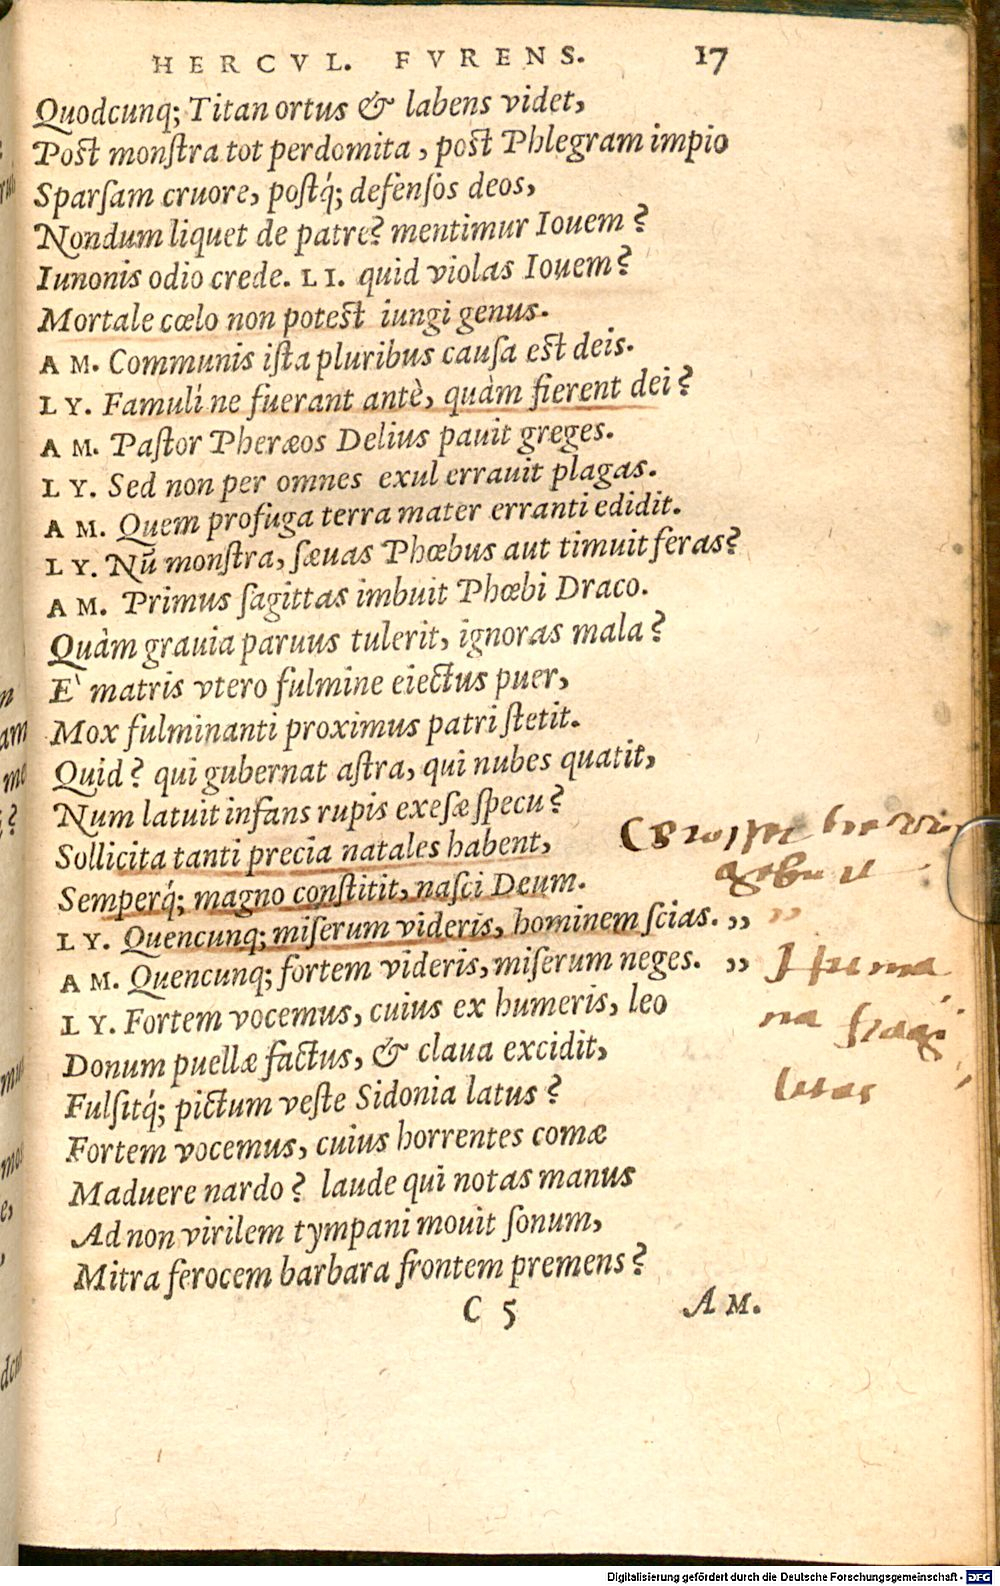 HERCVL. FVRENS. 17
Quodcunq; Titan ortus & labens videt,
Post monſtra tot perdomita, post Phlegram impio
Sparſam cruore, poſtq́; defenſos deos,
Nondum liquet de patre? mentimur Iouem?
Iunonis odio crede. LI. quid violas Iouem?
Mortale cœlo non potest iungi genus.
AM. Communis iſta pluribus cauſa est deis.
LY. Famuli ne fuerant antè, quàm fierent dei?
AM. Paſtor Pheræos Delius pauit greges.
LY. Sed non per omnes exul errauit plagas.
AM. Quem profuga terra mater erranti edidit.
LY. Nũ monſtra, ſæuas Phœbus aut timuit feras?
AM. Primus ſagittas imbuit Phœbi Draco.
Quàm grauia paruus tulerit, ignoras mala?
E` matris vtero fulmine eiectus puer,
Mox fulminanti proximus patri ſtetit.
Quid? qui gubernat aſtra, qui nubes quatit,
Num latuit infans rupis exeſæ ſpecu?
Sollicita tanti precia natales habent,
Semperq́; magno conſtitit, naſci Deum.
LY. Quencunq; miſerum videris, hominem ſcias. ,,
AM. Quencunq; fortem videris, miſerum neges. ,,
LY. Fortem vocemus, cuius ex humeris, leo
Donum puellæ factus, & claua excidit,
Fulſitq́; pictum veſte Sidonia latus?
Fortem vocemus, cuius horrentes comæ
Maduere nardo? laude qui notas manus
Ad non virilem tympani mouit ſonum,
Mitra ferocem barbara frontem premens?
C 5 AM.
Huma
na fragi
litas
mus
dcun
Digitalisierung gefördert durch die Deutsche Forschungsgemeinschaft - DFG